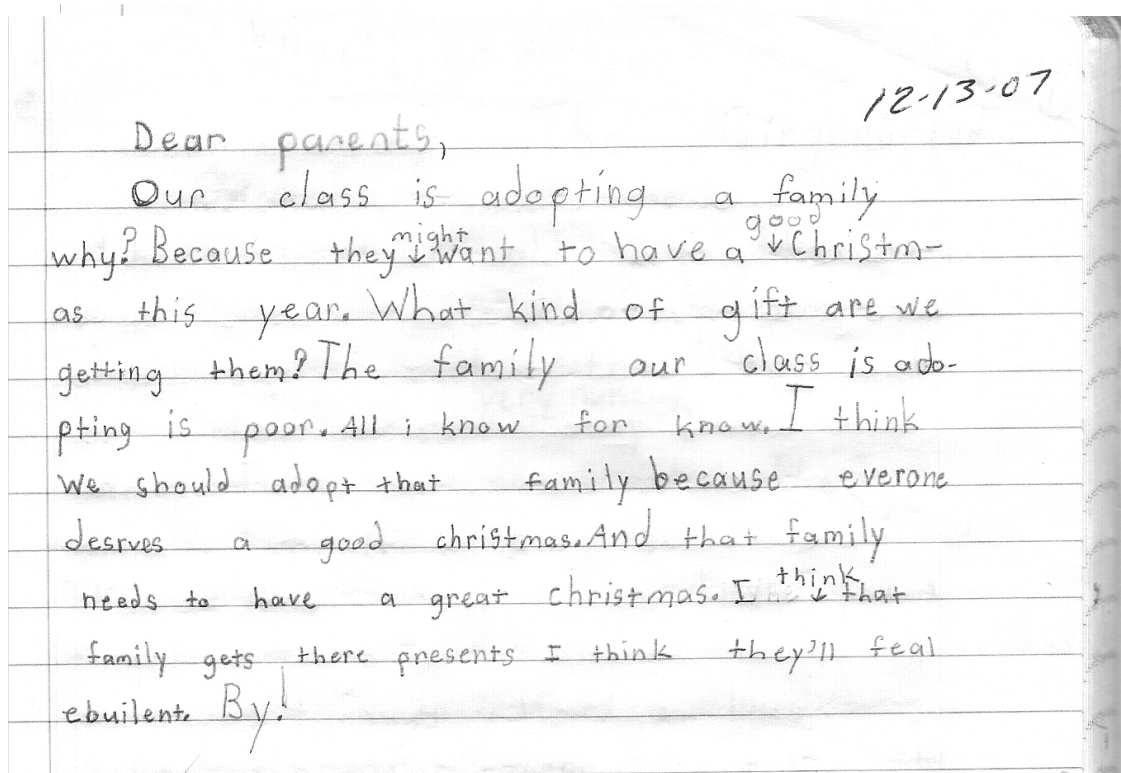 12-13-07
Dear parents,
Our class is adopting a family
why? Because they might want to have a good Christm-
as this year. What kind of gift are we
getting them? The family our class is ado-
pting is poor. All i know for know. I think
we should adopt that family because everone
desrves a good christmas. And that family
needs to have a great christmas. I think that
family gets there presents I think they'll feal
ebuilent. By!